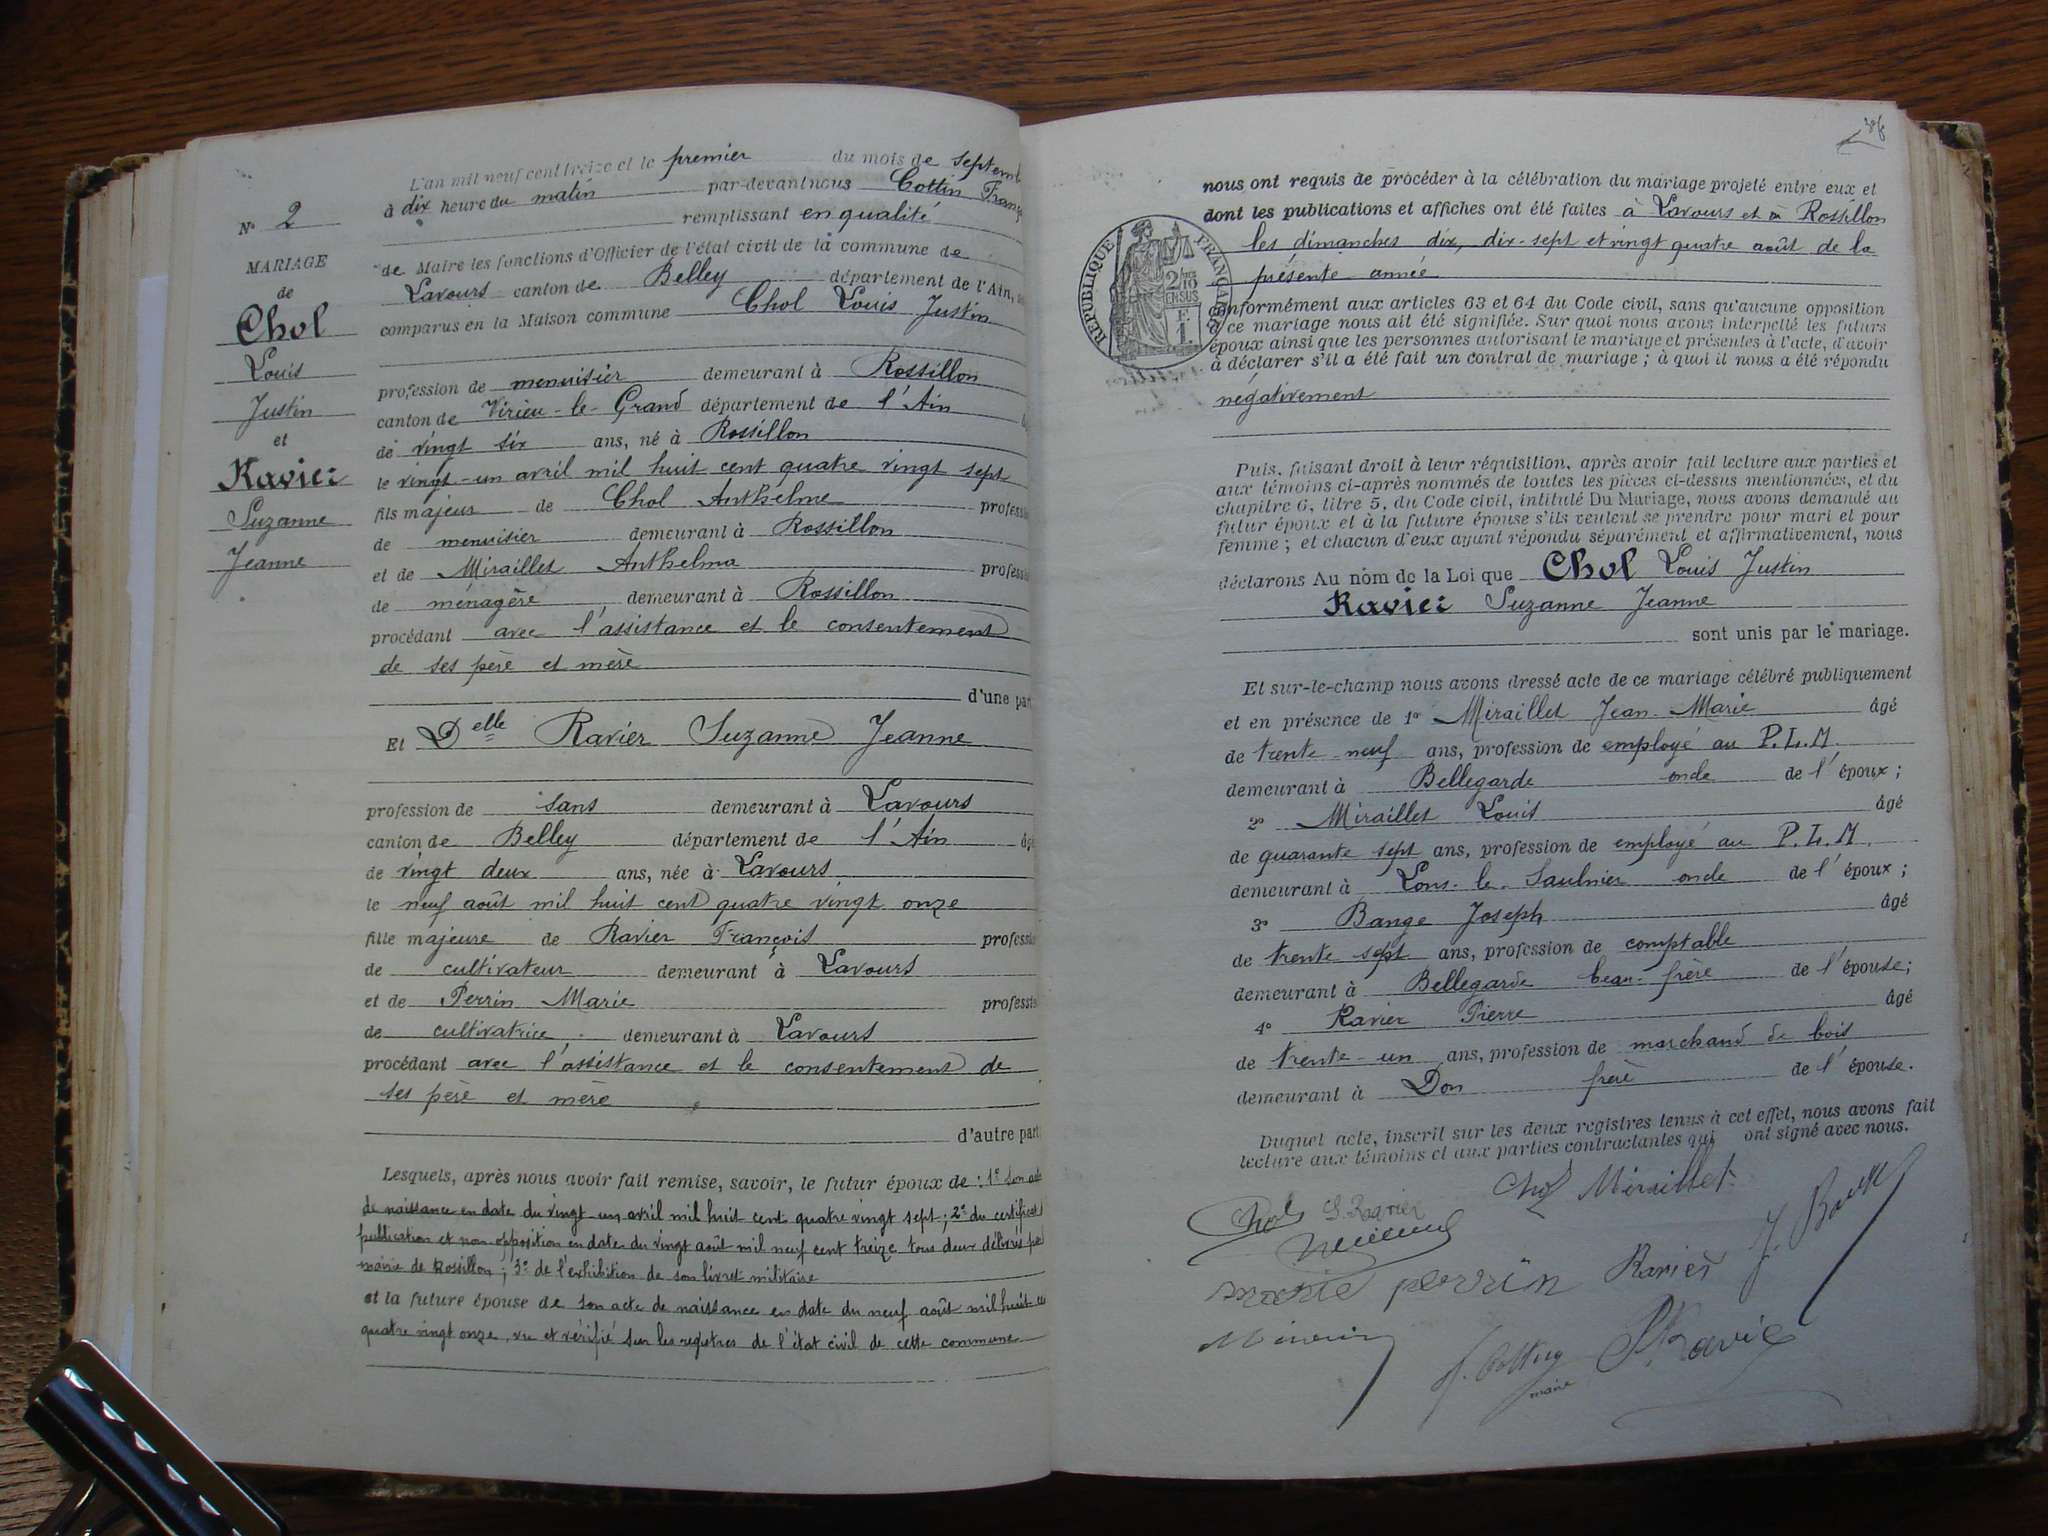 L'an mil neuf cent treize et le premier du mois de septemb
à dix heure du matin par-devant nous Cottin Franç
remplissant en qualité
de Maire les fonctions d'Officier de l'état civil de la commune de
Lavours canton de Belley département de l'Ain,
comparus en la Maison commune Chol Louis Justin
profession de menuisier demeurant à Rossillon
canton de Virieu-le-Grand département de l'Ain
de vingt six ans, né à Rossillon
le vingt-un avril mil huit cent quatre vingt sept
fils majeur de Chol Anthelme professio
de menuisier demeurant à Rossillon
et de Miraillet Anthelma professio
de ménagère demeurant à Rossillon
procédant avec l'assistance et le consentement
de ses père et mère
d'une part
Et Delle Ravier Suzanne Jeanne
profession de sans demeurant à Lavours
canton de Belley département de l'Ain âgé
de vingt deux ans, née à Lavours
le neuf août mil huit cent quatre vingt onze
fille majeure de Ravier François professio
de cultivateur demeurant à Lavours
et de Perrin Marie professio
de cultivatrice demeurant à Lavours
procédant avec l'assistance et le consentement de
ses père et mère
d'autre part
Lesquels, après nous avoir fait remise, savoir, le futur époux de : 1° Son acte
de naissance en date du vingt-un avril mil huit cent quatre vingt sept ; 2° du certificat
publication et non-opposition en date du vingt août mil neuf cent treize tous deux délivrés pa
mairie de Rossillon ; 3° de l'exhibition de son livret militaire
et la future épouse de son acte de naissance en date du neuf août mil huit ce
quatre vingt onze, vu et vérifié sur les registres de l'état civil de cette commune
N° 2
MARIAGE
de
Chol
Louis
Justin
et
Ravier
Suzanne
Jeanne
nous ont requis de procéder à la célébration du mariage projeté entre eux et
dont les publications et affiches ont été faites à Lavours et à Rossillon
les dimanches dix, dix-sept et vingt quatre août de la
présente année
conformément aux articles 63 et 64 du Code civil, sans qu'aucune opposition
à ce mariage nous ait été signifiée. Sur quoi nous avons interpellé les futurs
époux ainsi que les personnes autorisant le mariage et présentes à l'acte, d'avoir
à déclarer s'il a été fait un contrat de mariage ; à quoi il nous a été répondu
négativement
RÉPUBLIQUE FRANÇAISE
2/10
EN SUS
F.
1.
Puis, faisant droit à leur réquisition, après avoir fait lecture aux parties et
aux témoins ci-après nommés de toutes les pièces ci-dessus mentionnées, et du
chapitre 6, titre 5, du Code civil, intitulé Du Mariage, nous avons demandé au
futur époux et à la future épouse s'ils veulent se prendre pour mari et pour
femme ; et chacun d'eux ayant répondu séparément et affirmativement, nous
déclarons Au nom de la Loi que Chol Louis Justin
Ravier Suzanne Jeanne
sont unis par le mariage.
Et sur-le-champ nous avons dressé acte de ce mariage célébré publiquement
et en présence de 1° Miraillet Jean-Marie âgé
de trente-neuf ans, profession de employé au P.L.M.
demeurant à Bellegarde oncle de l'époux ;
2° Miraillet Louis âgé
de quarante sept ans, profession de employé au P.L.M.
demeurant à Lons-le-Saulnier oncle de l'époux ;
3° Bange Joseph âgé
de trente sept ans, profession de comptable
demeurant à Bellegarde beau-frère de l'épouse;
4° Ravier Pierre âgé
de trente-un ans, profession de marchand de bois
demeurant à Don frère de l'épouse.
Duquel acte, inscrit sur les deux registres tenus à cet effet, nous avons fait
lecture aux témoins et aux parties contractantes qui ont signé avec nous.
Chol S. Ravier Chol Miraillet
marie perrin Ravier J. Bange
f. Cottin Ravier
maire